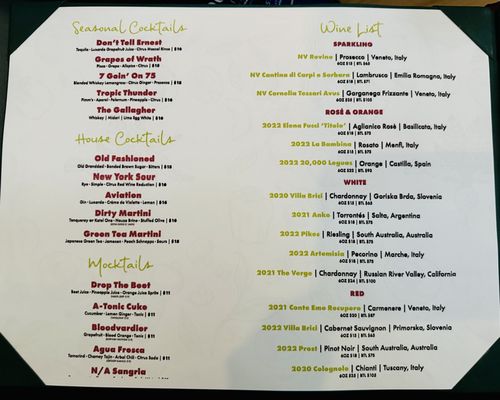 Seasonal Cocktails
Don't Tell Ernest
Tequila - Luxardo Grapefruit Juice - Citrus Mezcal Rinse | $16
Grapes of Wrath
Pisco - Grape - Allspice - Citrus | $16
7 Goin' On 75
Blended Whiskey Lemongrass - Citrus Ginger - Prosecco | $15
Tropic Thunder
Pimm's - Aperol - Falernum - Pineapple - Citrus | $16
The Gallagher
Whiskey | Midori | Lime Egg White | $16
House Cocktails
Old Fashioned
Old Granddad - Banded Brown Sugar - Bitters | $15
New York Sour
Rye - Simple - Citrus Red Wine Reduction | $16
Aviation
Gin - Luxardo - Crème de Violette - Lemon | $16
Dirty Martini
Tanqueray or Ketel One - House Brine - Stuffed Olive | $16
Green Tea Martini
Japanese Green Tea - Jameson - Peach Schnapps - Sours | $15
Mocktails
Drop The Beet
Beet Juice - Pineapple Juice - Orange Juice Sprite | $11
A-Tonic Cuke
Cucumber - Lemon Ginger - Tonic | $11
Bloodvardier
Grapefruit - Blood Orange - Tonic | $11
Agua Fresca
Tamarind - Chamoy Tajin - Arbol Chili - Citrus Soda | $11
N/A Sangria
Wine List
SPARKLING
NV Rovino | Prosecco | Veneto, Italy
6OZ $15 | BTL $60
NV Cantina di Carpi e Sorbara | Lambrusco | Emilia Romagna, Italy
6OZ $18 | BTL $71
NV Cornelia Tessari Avus | Garganega Frizzante | Veneto, Italy
6OZ $25 | BTL $105
ROSÉ & ORANGE
2022 Elena Fucci 'Titolo' | Aglianico Rosè | Basilicata, Italy
6OZ $18 | BTL $75
2022 La Bambina | Rosato | Menfi, Italy
6OZ $18 | BTL $75
2022 20,000 Leguas | Orange | Castilla, Spain
6OZ $22 | BTL $92
WHITE
2020 Villa Brici | Chardonnay | Goriska Brda, Slovenia
6OZ $15 | BTL $65
2021 Anko | Torrontés | Salta, Argentina
6OZ $18 | BTL $75
2022 Pikes | Riesling | South Australia, Australia
6OZ $18 | BTL $75
2022 Artemisia | Pecorino | Marche, Italy
6OZ $18 | BTL $75
2021 The Verge | Chardonnay | Russian River Valley, California
6OZ $24 | BTL $100
RED
2021 Conte Emo Recupero | Carmenere | Veneto, Italy
6OZ $20 | BTL $87
2022 Villa Brici | Cabernet Sauvignon | Primorska, Slovenia
6OZ $15 | BTL $65
2022 Prost | Pinot Noir | South Australia, Australia
6OZ $18 | BTL $75
2020 Colognole | Chianti | Tuscany, Italy
6OZ $25 | BTL $105